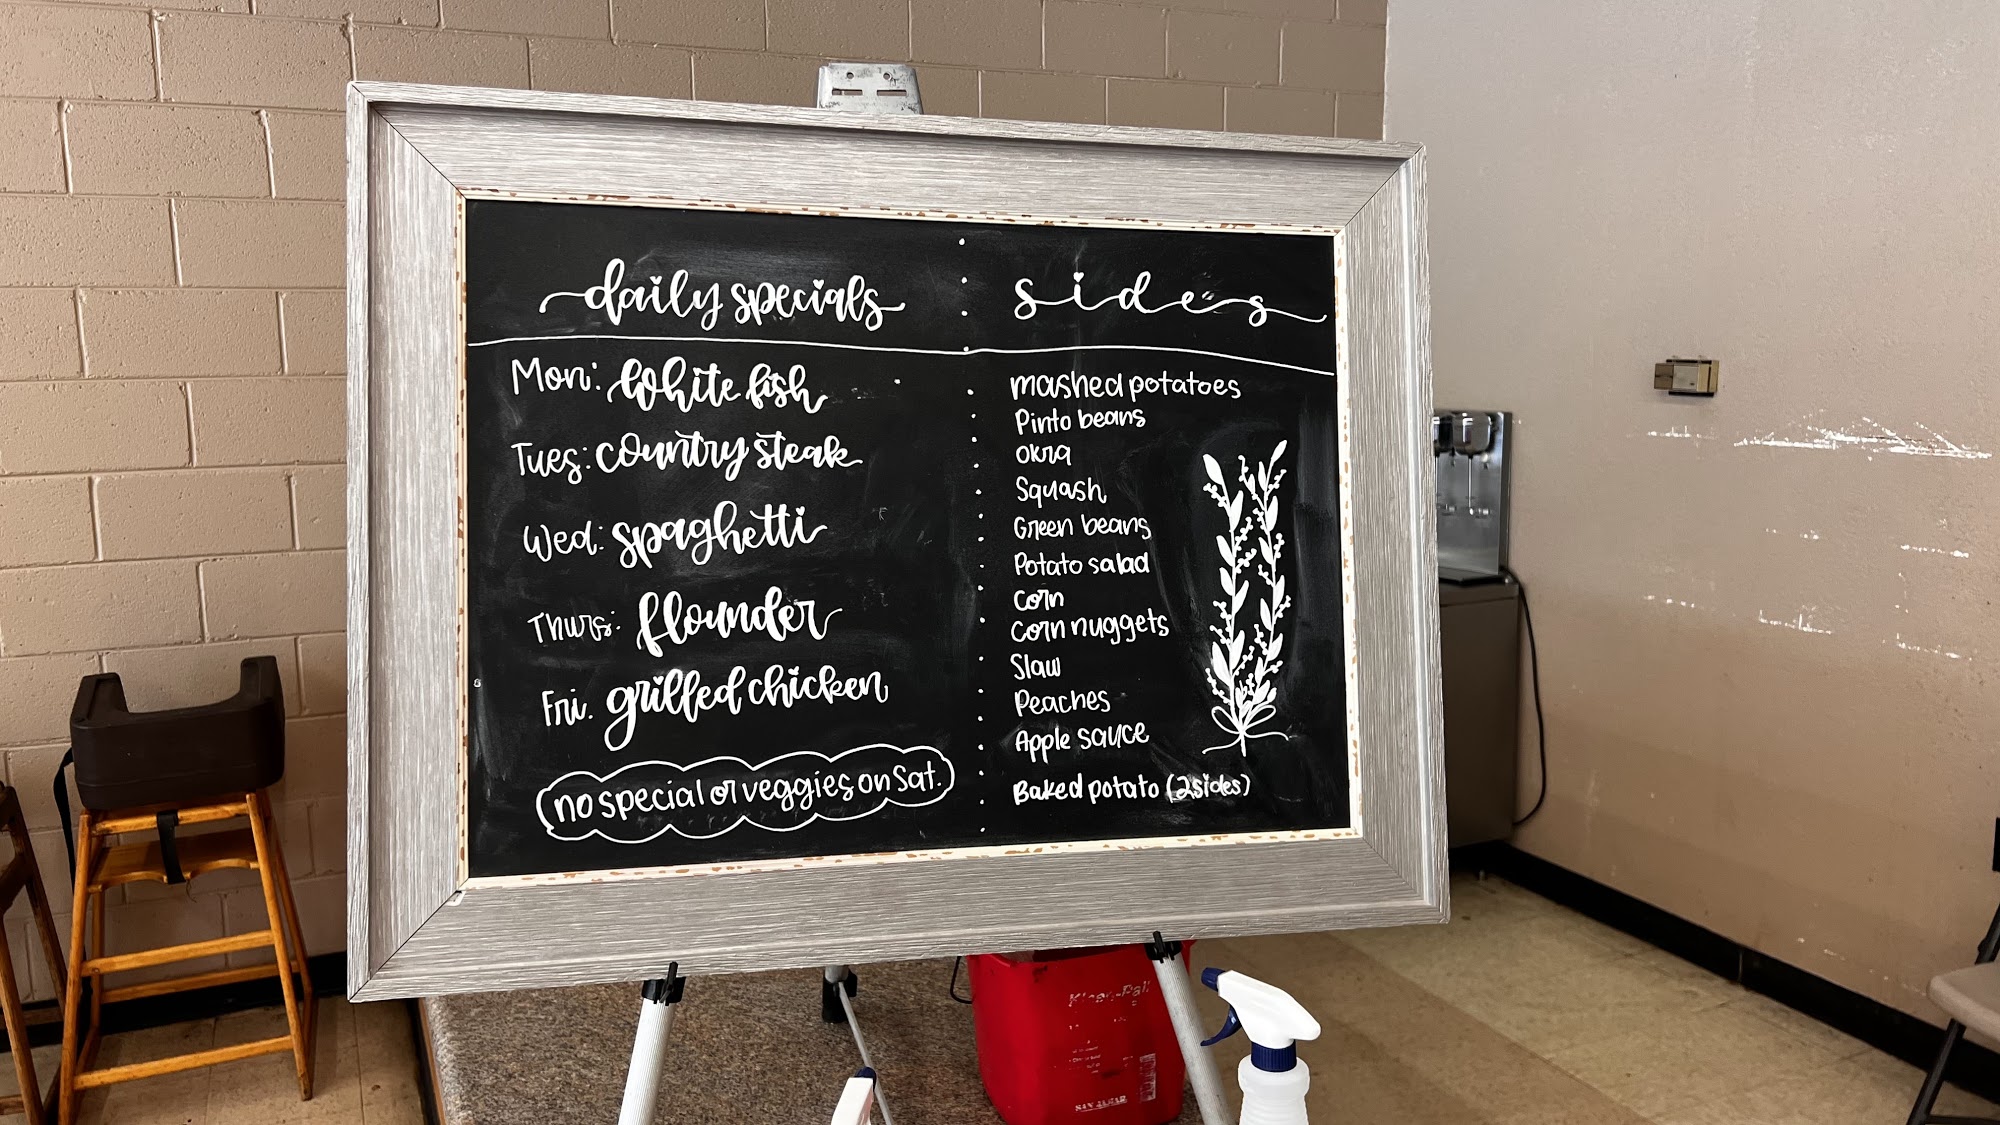 daily specials
Mon: White fish
Tues: country steak
Wed: spaghetti
Thurs: flounder
Fri. grilled chicken
no special or veggies on Sat.
sides
mashed potatoes
Pinto beans
okra
Squash
Green beans
Potato salad
corn
corn nuggets
Slaw
Peaches
Apple sauce
Baked potato (2sides)
Kleen-Pail
SAN JAMAR